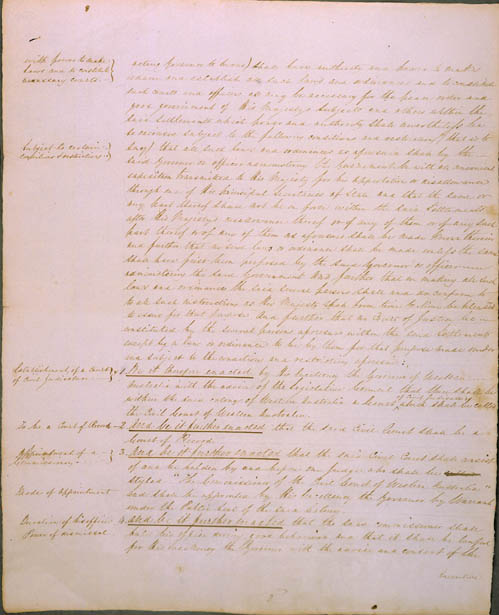 with power to make
laws and to establish
necessary courts.
acting Governor to have) shall have authority and power to make
ordain and establish all such laws and ordinances and to constitute
such courts and officers as may be necessary for the peace order and
good government of His Majesty's subjects and others within the
said Settlements which power and authority shall nevertheless be
exercised subject to the following conditions and restrictions that is to
Subject to certain
conditions & restrictions
say) that all such laws and ordinances as aforesaid shall by the
said Governor or officer administering the Government be with all convenient
expedition transmitted to His Majesty for his approbation or disallowance
through one of His Principal Secretaries of State and that the same or
any part thereof shall not be in force within the said Settlements
after His Majesty's disallowance thereof or of any of them or of any such
part thereof or of any of them as aforesaid shall be made known therein
and further that no such law or ordinance shall be made unless the same
shall have first been proposed by the said Governor or officer
administering the said Government And further that in making all such
laws and ordinances the said several persons shall conform to
all such instructions as His Majesty shall from time to time be pleased
to issue for that purpose And further that no Court of Justice be
constituted by the several persons aforesaid within the said Settlements
except by a law or ordinance to be by them for that purpose made
and subject to the conditions and restrictions aforesaid.
Establishment of a Court
of Civil Judicature
1 Be it therefore enacted by His Excellency the Governor of Western
Australia with the advice of the Legislative Council that there shall be
within the said colony of Western Australia a Court of Civil Judicature which shall be called
the Civil Court of Western Australia.
To be a Court of Record
2. And be it further enacted that the said Civil Court shall be a
Court of Record.
Appointment of a
Commissioner.
3. And be it further enacted that the said Civil Court shall consist
of and be holden by and before one judge who shall be
styled "The Commissioner of the Civil Court of Western Australia"
Mode of Appointment
and shall be appointed by His Excellency the Governor by Warrant
under the Public Seal of the said colony.
Duration of his office
Power of removal
4 And be it further enacted that the said Commissioner shall
hold his office during good behaviour and that it shall be lawful
for His Excellency the Governor with the advice and consent of the
Executive
2